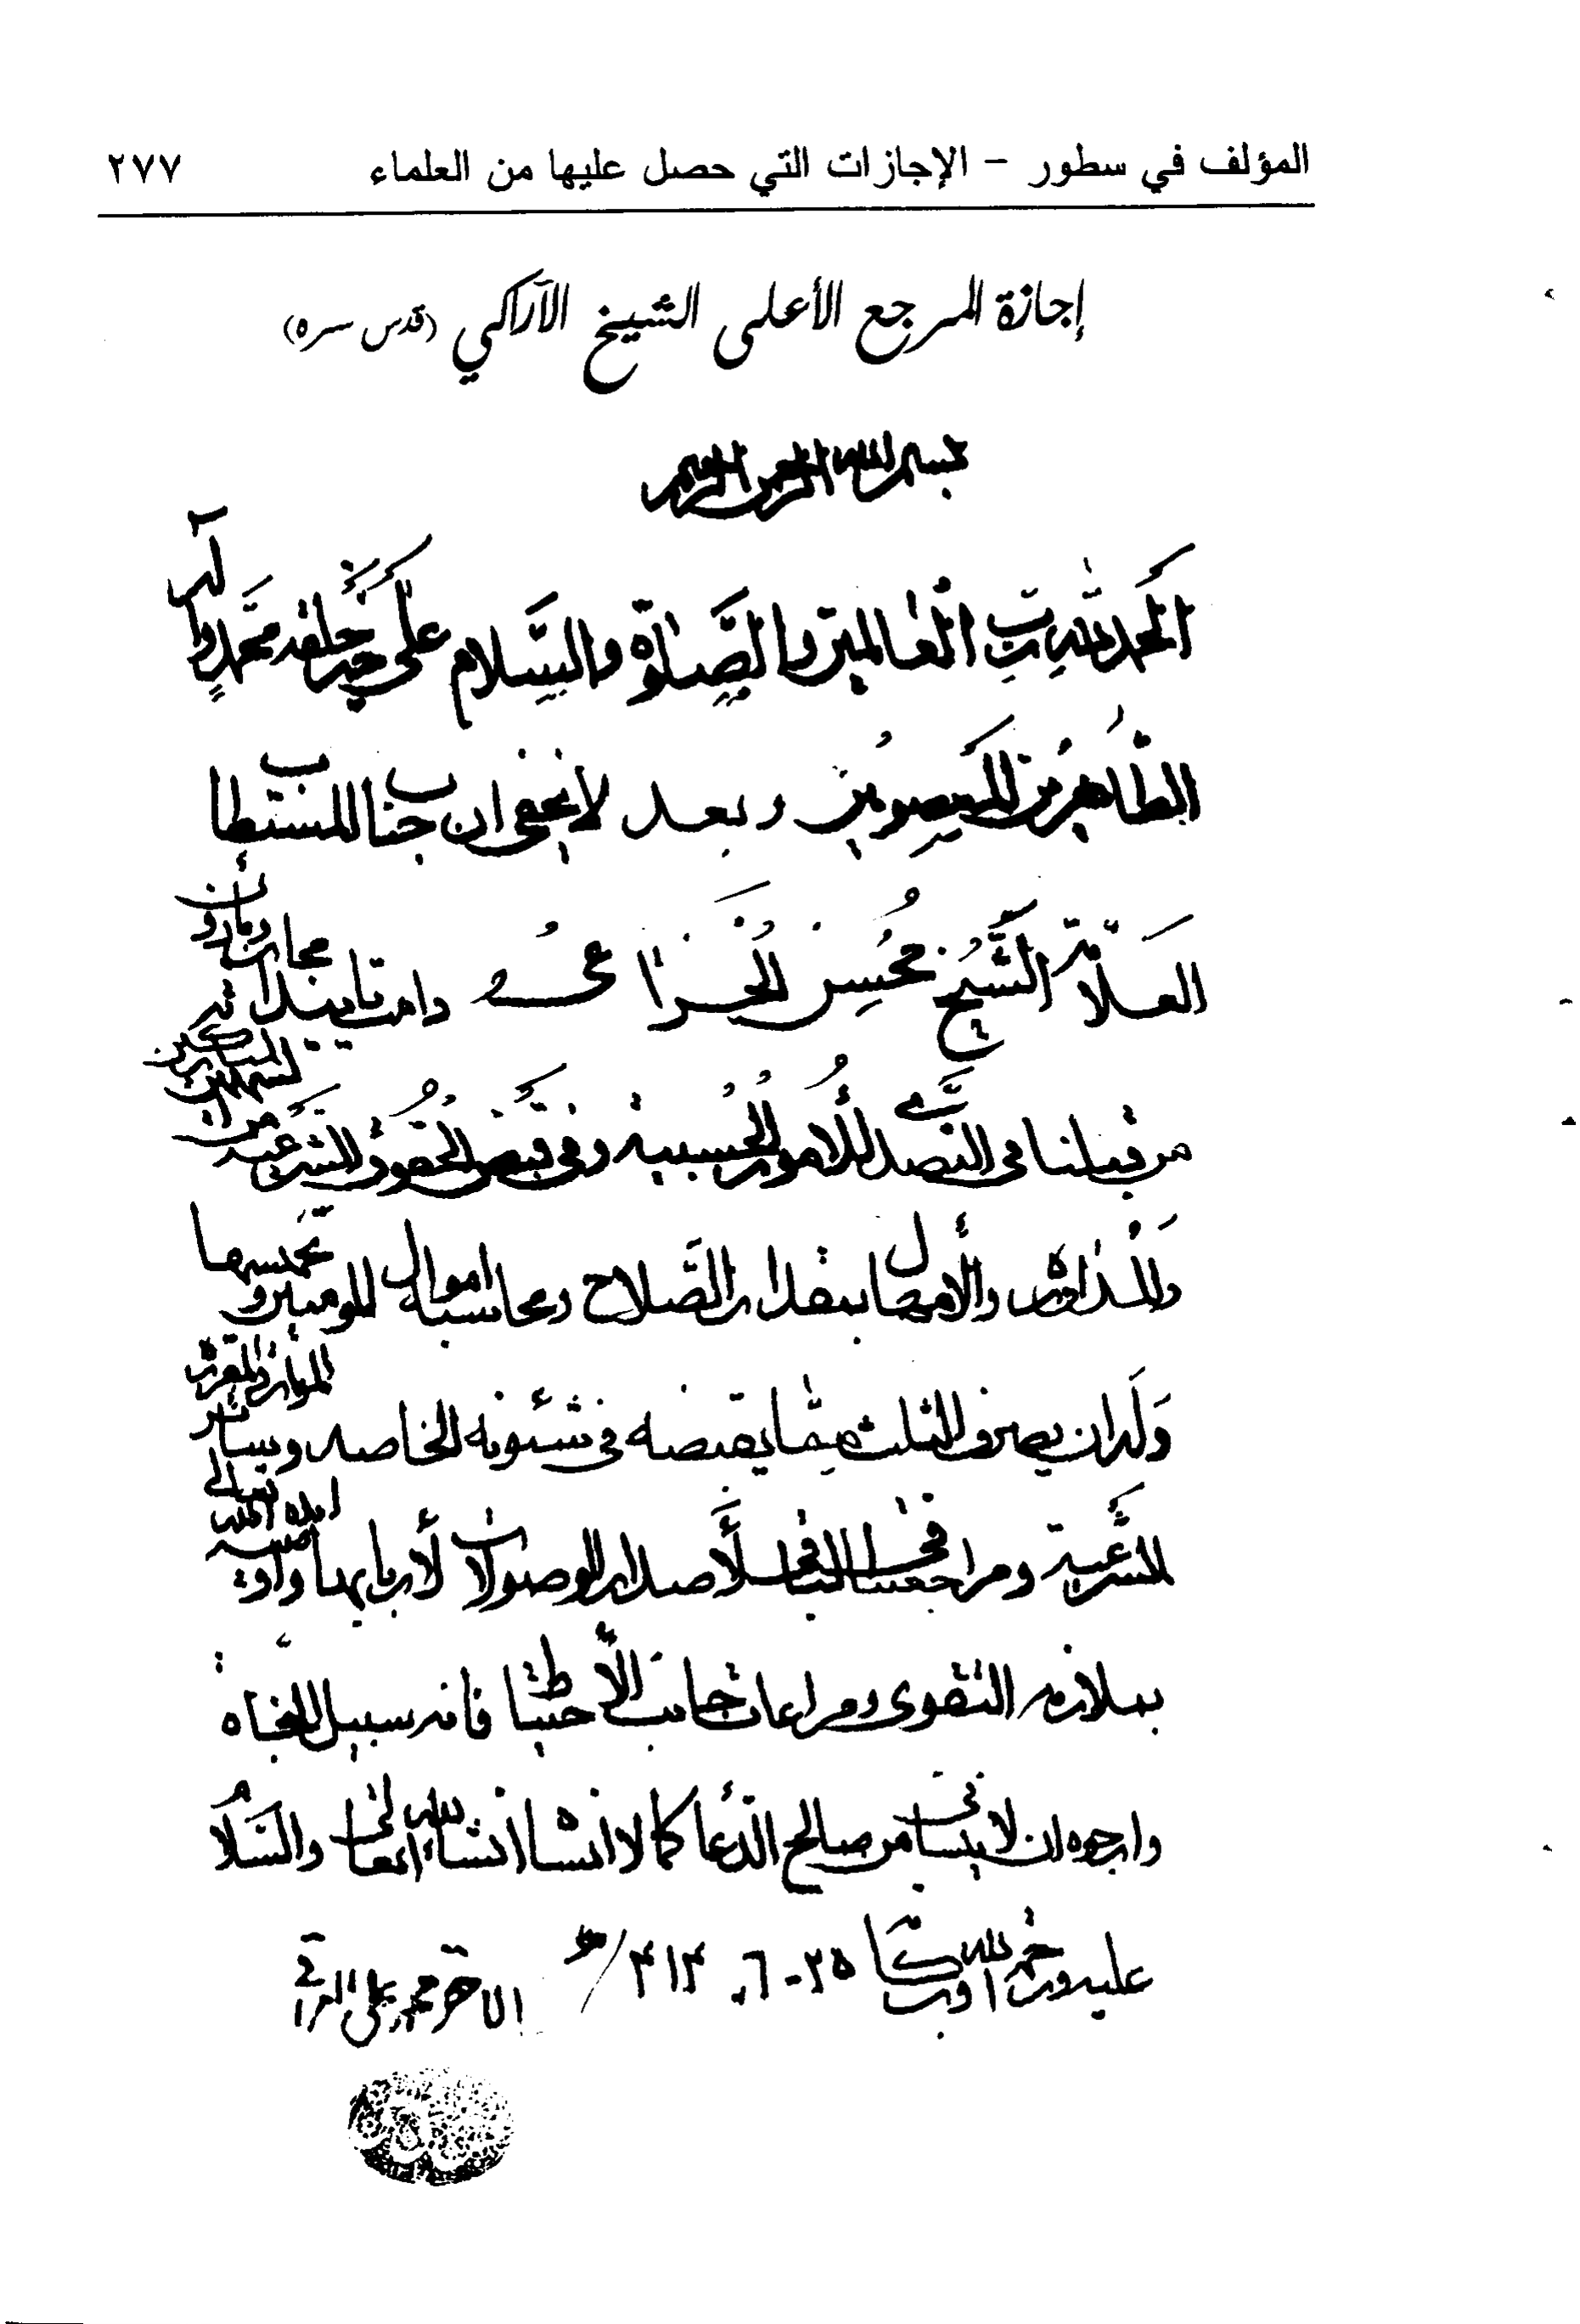 المؤلف في سطور - الإجازات التي حصل عليها من العلماء ٢٧٧
إجازة المرجع الأعلى الشيخ الآراكي (قدس سره)
بسم الله الرحمن الرحيم
الحمد لله رب العالمين والصلاة والسلام على خير خلقه محمد وآله
الطاهرين المعصومين وبعد لا يخفى ان جناب المستطاب
العلامة الشيخ محسن الخزاعي دامت تأييداته مجاز ومأذون
من قبلنا في التصدي للأمور الحسبية وفي قبض الحقوق الشرعية من
والأمصال بمقدار الصلاح ومحاسبة اموال المومنين وتخميسها
وله ان يصرف الثلث مما يقبضه في شئونه الخاصه وسائر
الشرعية ومراجعتنا في الباقي لأصدار الوصولات لأربابها وأوصيه ايده الله تعالى
بملازمة التقوى ومراعات جانب الأحتياط فانه سبيل النجاة
وارجوه ان لا ينساني من صالح الدعا كما لا انساه انشاء الله تعالى والسلام
عليه ورحمة الله وبركاته ٢٥-٦
الاحقر محمد علي العراقي